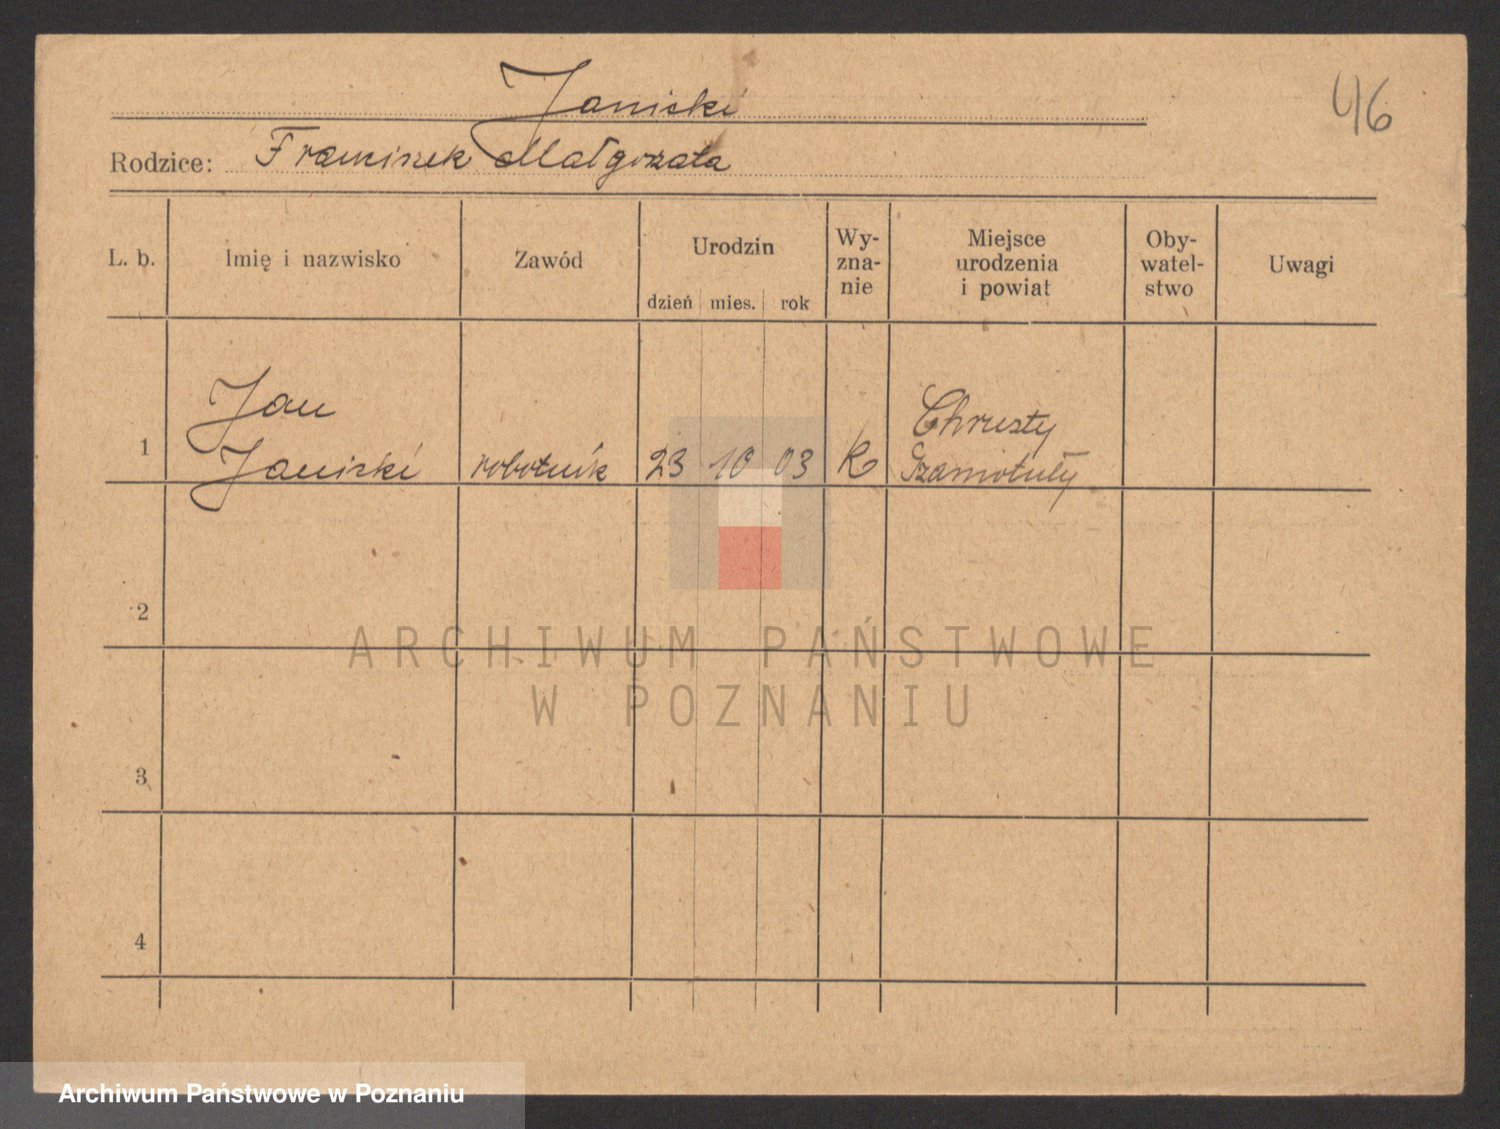 Janicki
46
Rodzice: Franciszek Małgorzata
L. b.
Imię i nazwisko
Zawód
Urodzin
dzień mies. rok
Wy-
zna-
nie
Miejsce
urodzenia
i powiat
Oby-
watel-
stwo
Uwagi
1
Jan
Janicki
robotnik
23 10 03
K
Chrusty
Szamotuły
2
3
4
ARCHIWUM PAŃSTWOWE
W POZNANIU
Archiwum Państwowe w Poznaniu